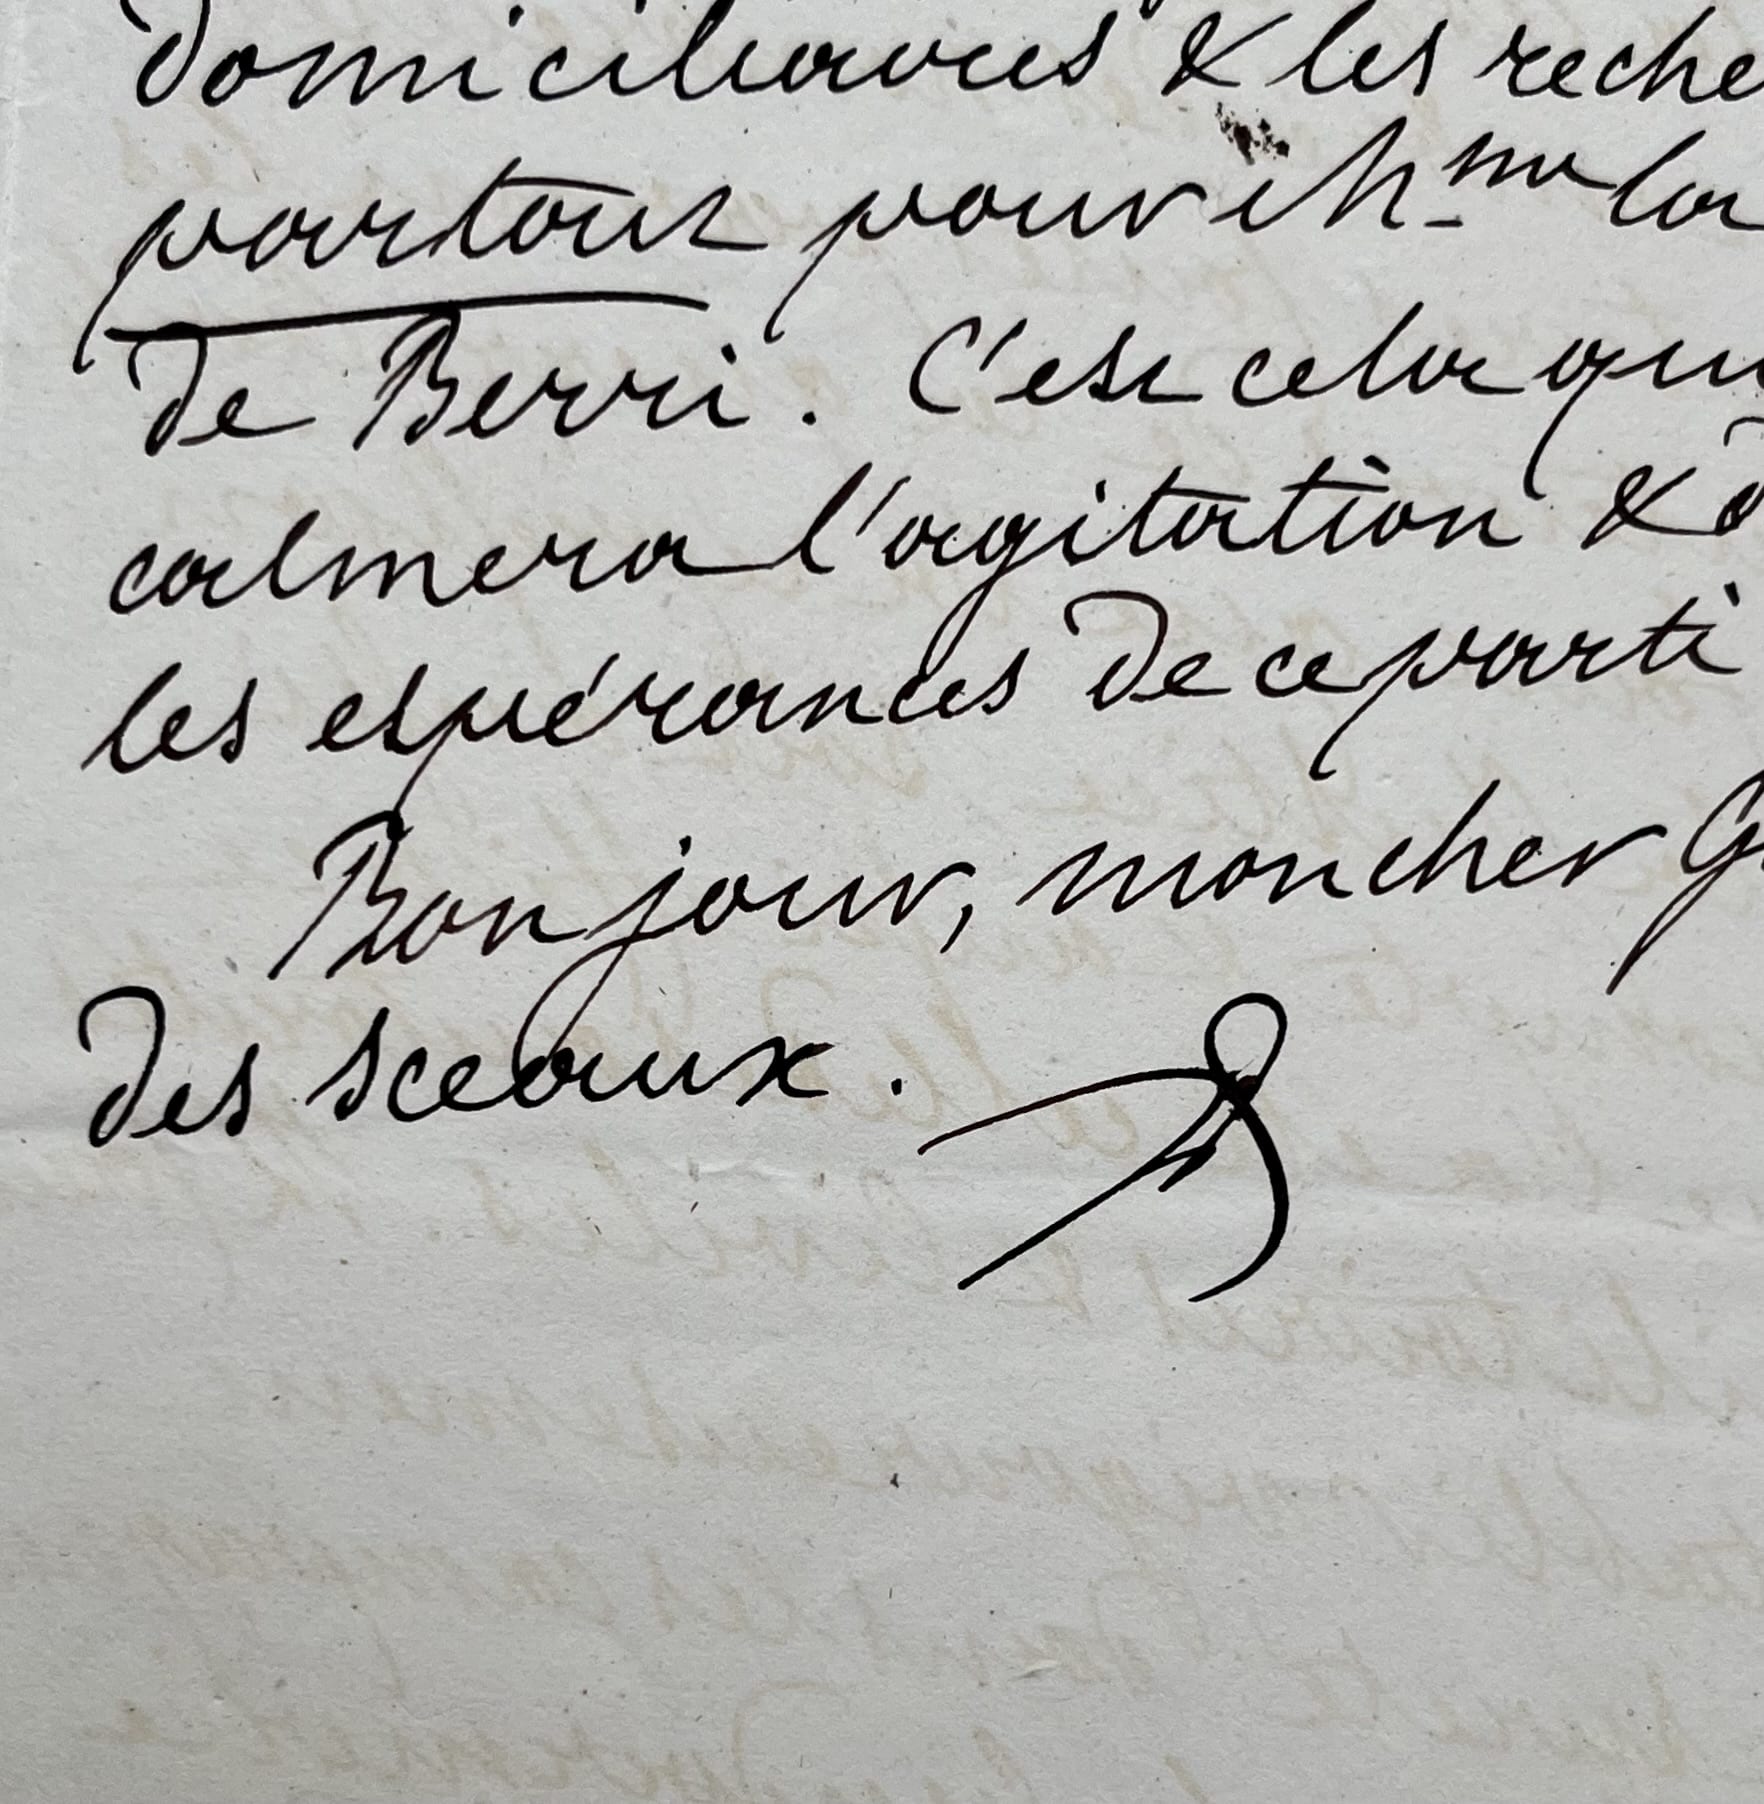 domiciliaires & les reche
partout pour Mme la
de Berri. C'est cela qui
calmera l'agitation & d
les espérances de ce parti
Bonjour, mon cher G
des sceaux.